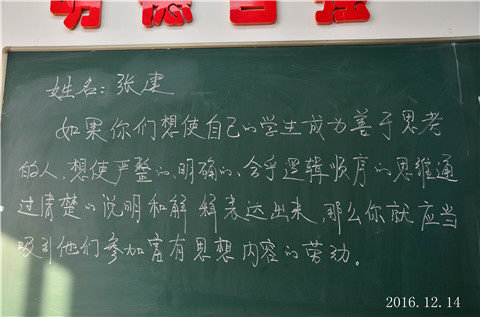 明德自强
姓名:张建
如果你们想使自己的学生成为善于思考
的人,想使严整的、明确的、合乎逻辑顺序的思维通
过清楚的说明和解释表达出来,那么你就应当
吸引他们参加富有思想内容的劳动。
2016.12.14